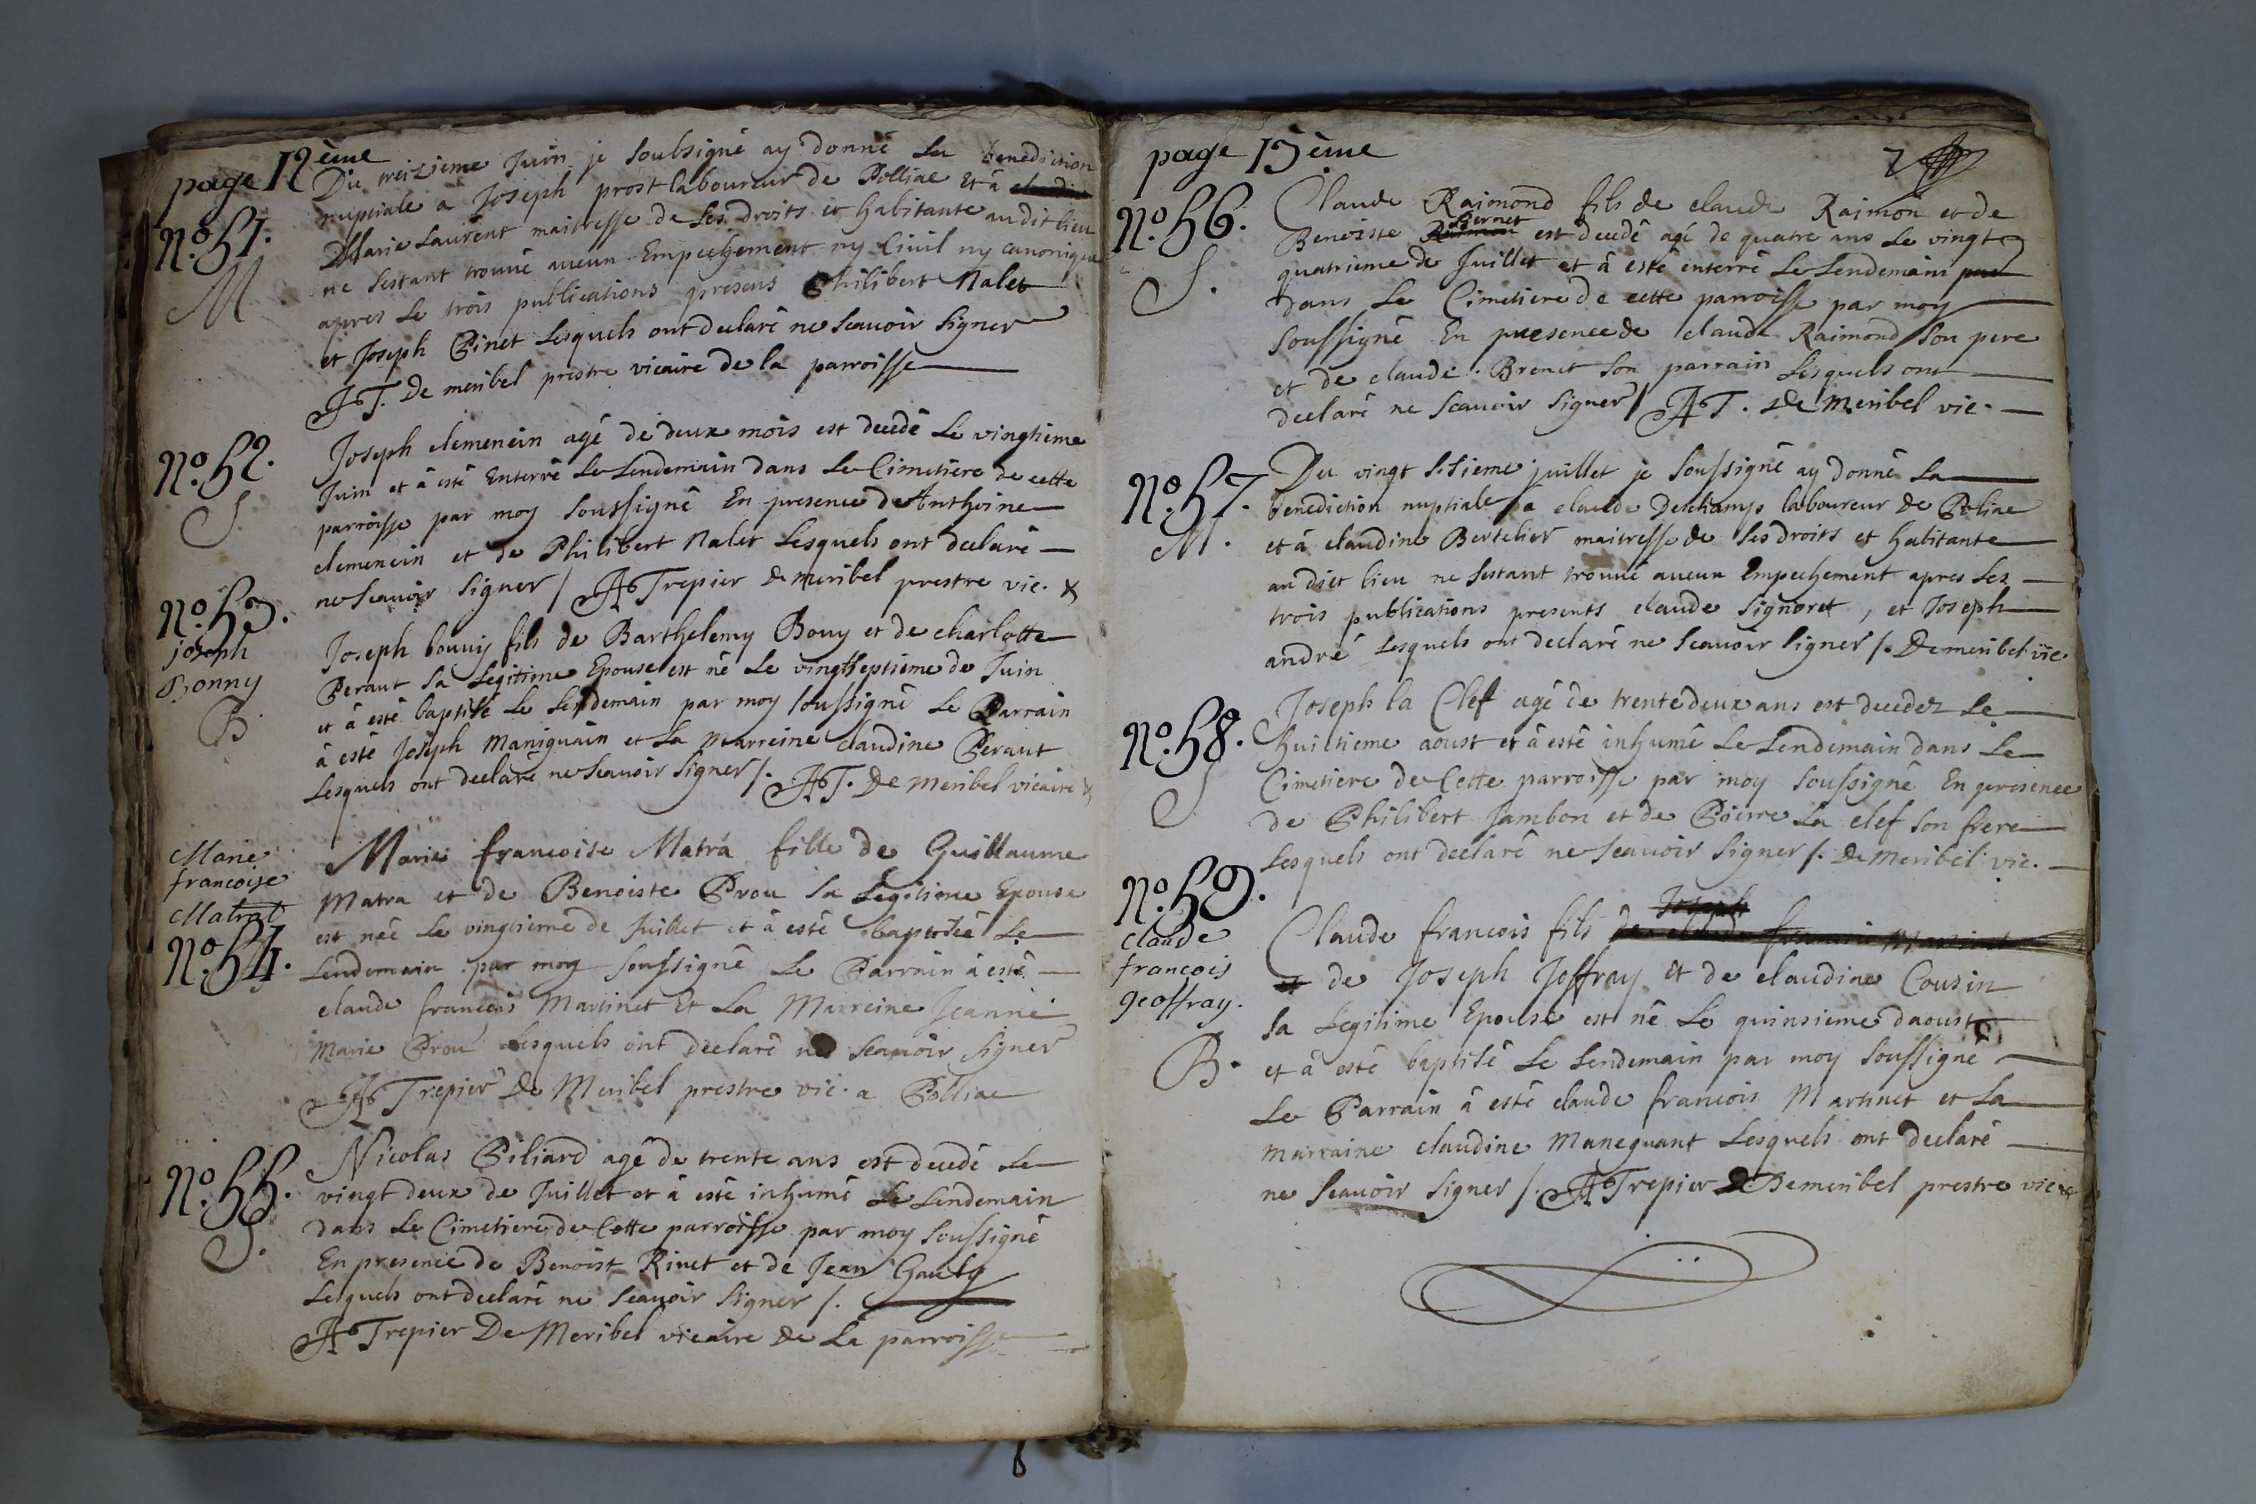 page 12ème
Du treizieme Juin je soubsigné ay donné La benediction
nuptiale a Joseph prost laboureur de Polliac Et â
No. 51.
M
Marie Laurent maitresse de ses droits et habitante audit lieu
ne sestant trouvé aucun Empechement ny Civil ny canonique
apres Le trois publications presens Philibert Nalet
et Joseph Pinet Lesquels ont declaré ne Scauoir Signer
AT. De meribel prestre vicaire de la parroisse
No. 52.
S.
Joseph clemencin agé de deux mois est decedé Le vingtieme
Juin et â esté Enterré Le Lendemain dans Le Cimetiere de cette
parroisse par moy soussigné En presence de Anthoine
clemencin et de Philibert Nalet Lesquels ont declaré
ne Scauoir Signer / A Trepier de meribel prestre vic.
No. 53.
joseph
Bonny
B
Joseph bouuy fils de Barthelemy Bouy et de charlotte
Peraut Sa Legitime Epouse est né Le vingtseptieme de Juin
et â esté baptisé Le Lendemain par moy soussigné Le Parrain
â esté Joseph Maniguain et La Marreine claudine Peraut
Lesquels ont declaré ne Scauoir Signer /. AT. De Meribel vicaire
Marie
francoise
Matrat
No. 54.
Marie francoise Matrá fille de Guillaume
Matra et de Benoiste Prou Sa Legitime Epouse
est née Le vingtieme de Juillet et â esté baptisée Le
Lendemain par moy soussigné Le Parrain â esté
claude françois Martinet Et La Marreine Jeanne
Marie Prou Lesquels ont declaré ne Scauoir Signer
A Trepier De Meribel prestre vic. a Polliac
No. 55.
S.
Nicolas Piliard agé de trente ans est decedé Le
vingt deux de Juillet et â esté inhumé Le Lendemain
dans Le Cimetiere de Cette parroisse par moy soussigné
En presence de Benoist Rinet et de Jean Gauly
Lesquels ont declaré ne Scauoir Signer /.
A Trepier De Meribel vicaire de La parroisse
page 13ème
No. 56.
S.
Claude Raimond fils de claude Raimon et de
Benoiste Bernet est decedé agé de quatre ans Le vingt
quatrieme de Juillet et â esté enterré Le Lendemain
dans Le Cimetiere de cette parroisse par moy
soussigné En presence de claude Raimond Son pere
et de claude Brenet Son parrain Lesquels ont
declaré ne Scauoir Signer / AT. De Meribel vic.
No. 57.
M.
Du vingt Sisieme juillet je soussigné ay donné La
benediction nuptiale a claude Deschamps laboureur de Poliac
et â claudine Bertelier maitresse de Ses droits et habitante
audict lieu ne Sestant trouvé aucun Empechement apres Les
trois publications presents claude Signoret, et Joseph
andré Lesquels ont declaré ne Scauoir signer /. De meribel vic
No. 58.
S
Joseph la Clef agé de trente deux ans est decedez Le
huictieme aoust et â esté inhumé Le Lendemain dans Le
Cimetiere de Cette parroisse par moy soussigné En presence
de Philibert Jambon et de Pierre La clef Son frere
Lesquels ont declaré ne Scauoir Signer /. De Meribel vic.
No. 59.
claude
francois
geoffray.
B.
Joseph
Claude francois fils
de Joseph Joffray et de claudine Cousin
sa Legitime Epouse est né Le quinsieme daoust
et â esté baptisé Le Lendemain par moy soussigné
Le Parrain â esté claude francois Martinet et La
marraine claudine Maneguant Lesquels ont declaré
ne Scauoir Signer /. A Trepier Demeribel prestre vic